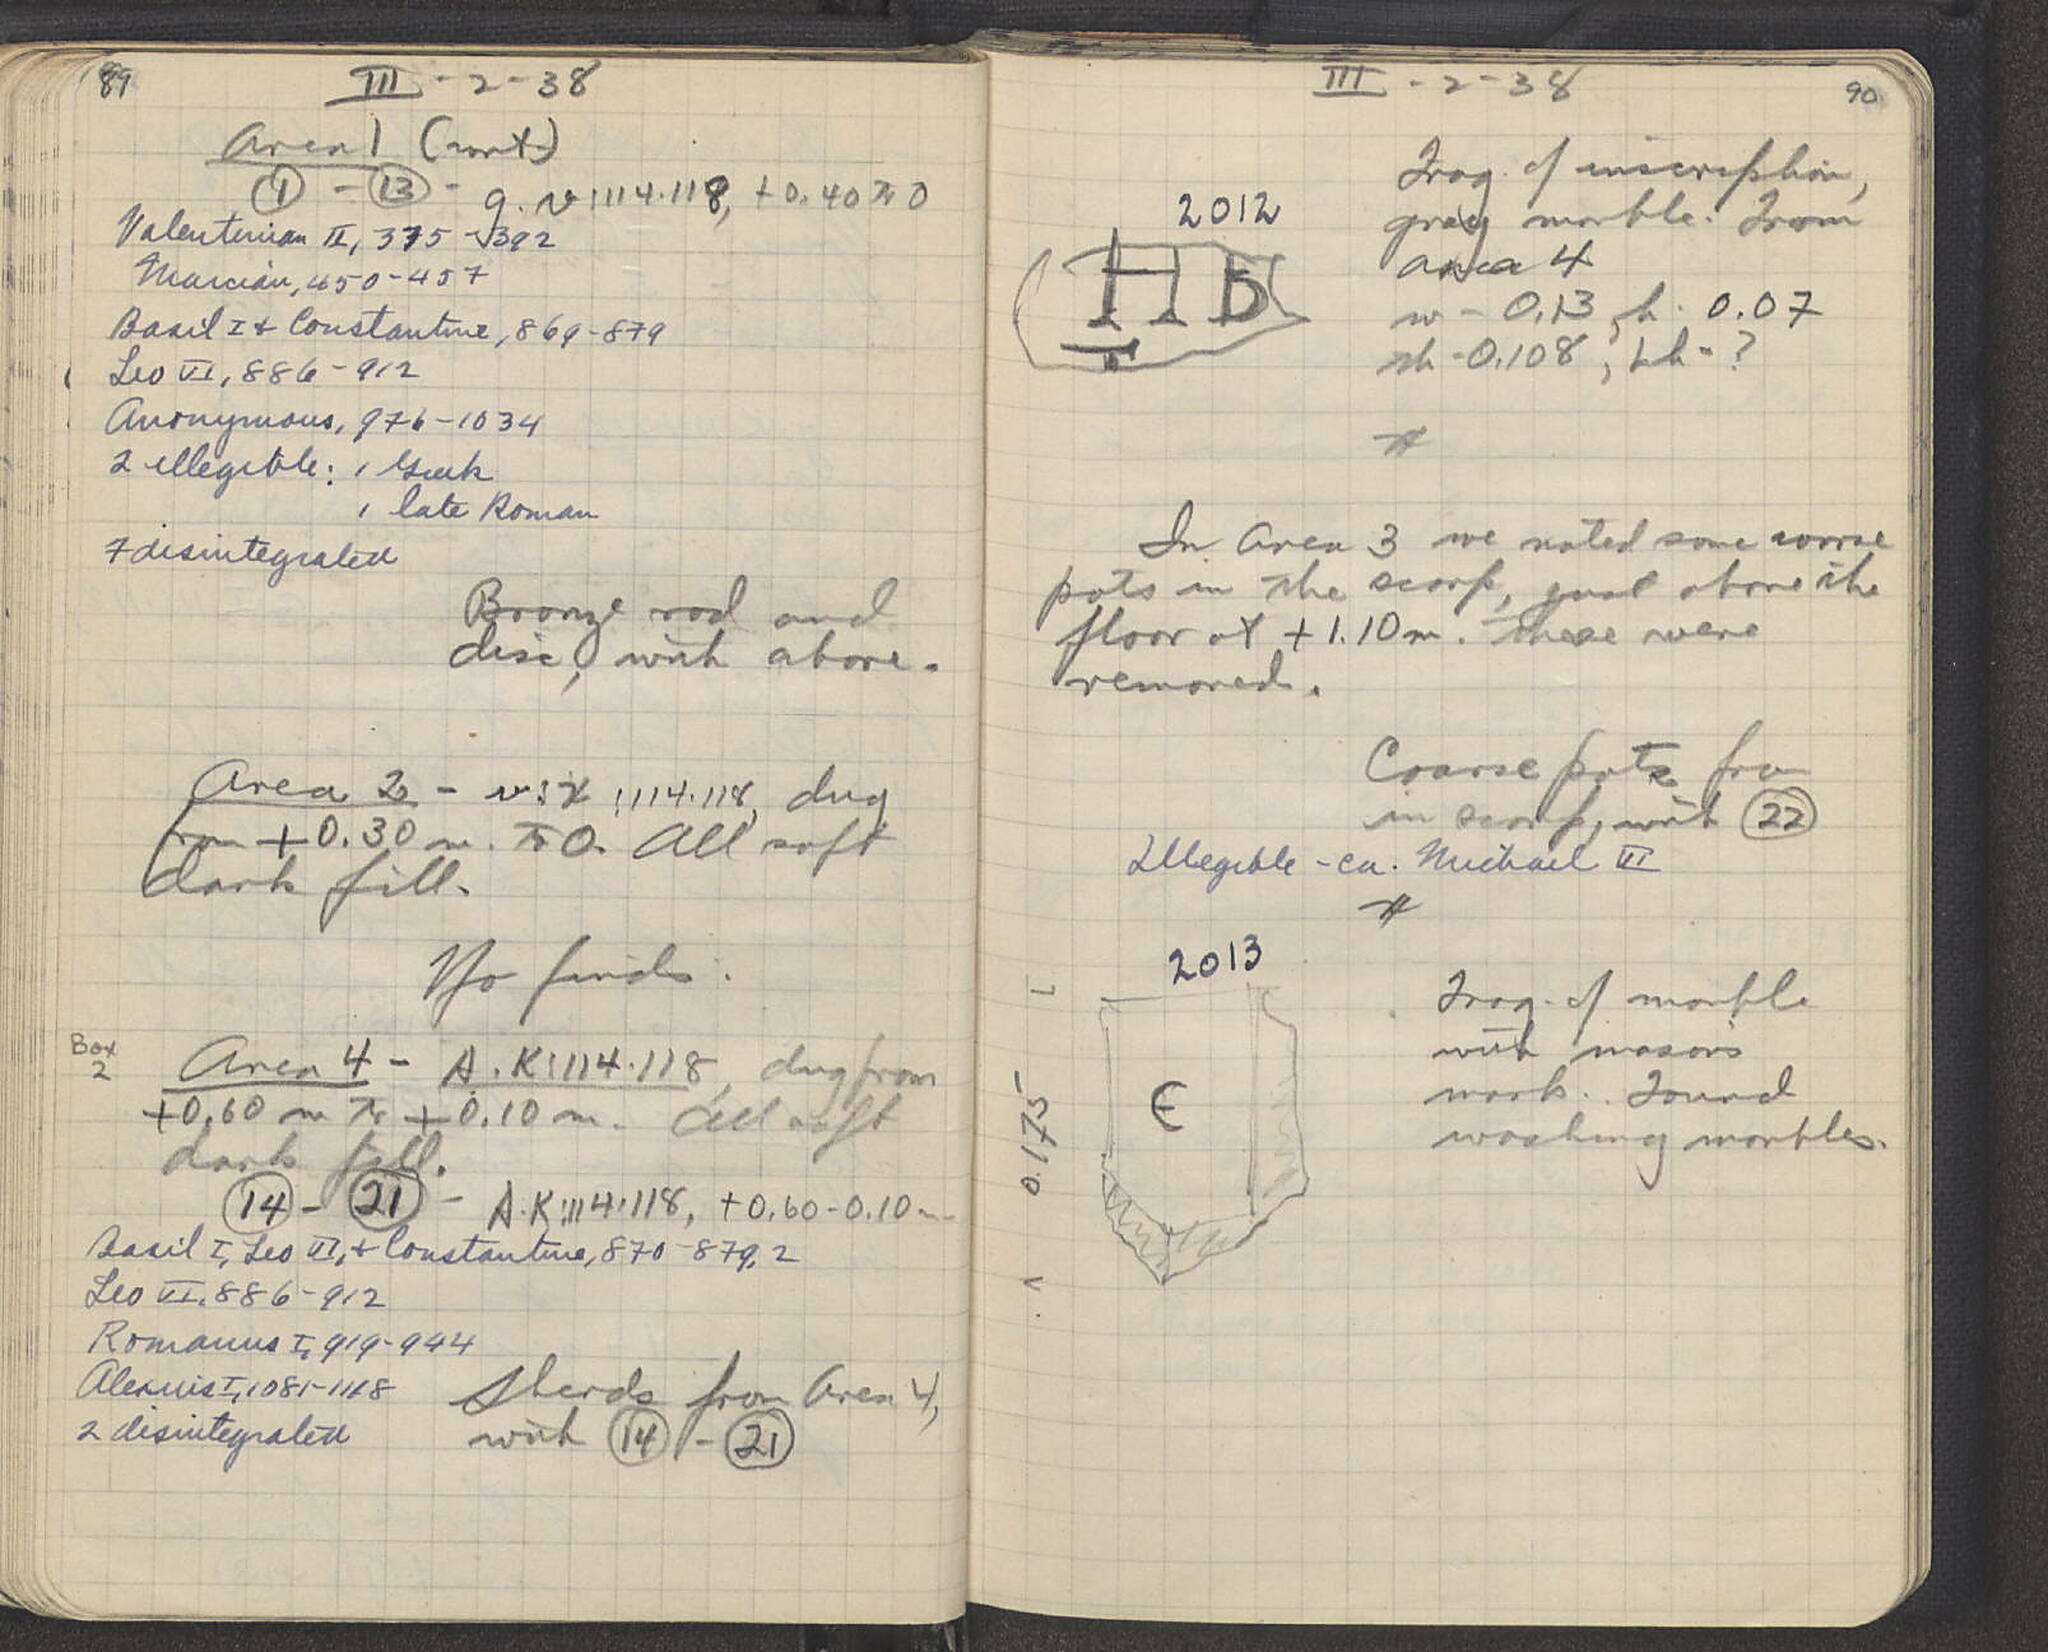 89
III - 2 - 38
Area 1 (cont)
1 - 13 - q.v:114.118, +0.40 to 0
Valentinian II, 375-392
Marcian, 450-457
Basil I & Constantine, 869-879
Leo VI, 886-912
Anonymous, 976-1034
2 illegible: 1 Greek
1 late Roman
7 disintegrated
Bronze rod and
disc, with above.
Area 2 - v:x:114.118, dug
from +0.30 m. to 0. All soft
dark fill.
No finds.
Box
2
Area 4 - A.K:114.118, dug from
+0.60 m to +0.10 m. All soft
dark fill.
14 - 21 - A.K:114.118, +0.60-0.10 m
Basil I, Leo VI, & Constantine, 870-879, 2
Leo VI, 886-912
Romanus I, 919-944
Alexius I, 1081-1118
2 disintegrated
Sherds from Area 4,
with 14 - 21
III - 2 - 38
90
2012
HB
Frag. of inscription,
gray marble. From
area 4
w - 0.13, h. 0.07
th - 0.108; Lh - ?
In Area 3 we noted some coarse
pots in the scarp, just above the
floor at +1.10 m. These were
removed.
Coarse pots from
in scarp, with 22
Illegible - ca. Michael VII
2013
E
0.175
Frag. of marble
with mason's
mark. Found
washing marbles.